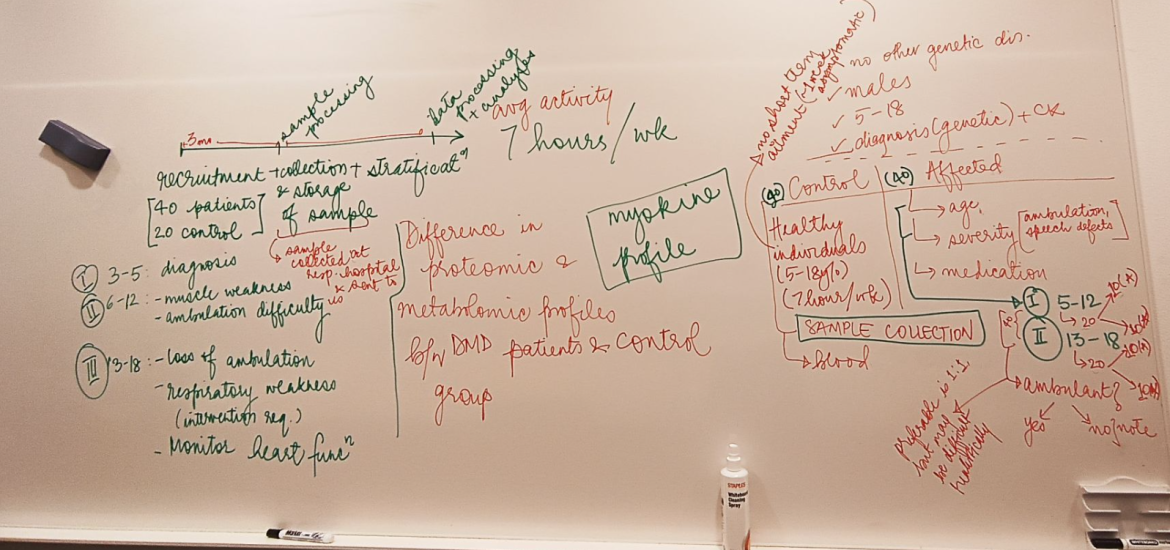 3mo
sample
processing
Data
processing
+ analyses
recruitment + collection + stratificatⁿ
& storage
of sample
40 patients
20 control
sample
collected at
resp. hospital
& sent to
us
I 3-5: diagnosis
II 6-12: - muscle weakness
- ambulation difficulty
III 13-18: - Loss of ambulation
- respiratory weakness
(intervention req.)
- Monitor heart funcⁿ
avg activity
7 hours/wk
Difference in
proteomic &
metabolomic profiles
b/w DMD patients & control
group
myokine
profile
no short term
ailment (~1 week
asymptomatic)
no other genetic dis.
✓ males
✓ 5-18
✓ diagnosis (genetic) + CK
(40) Control
Healthy
individuals
(5-18y/o)
(7hour/wk)
SAMPLE COLLECTION
→ blood
(40) Affected
→ age
→ severity [ambulation,
speech defects]
→ medication
I 5-12
→ 20
10(A)
II 13-18
→ 20
10(A)
40
ambulant?
yes
no/note
preferable is 1:1
but may
be difficult
realistically
STAPLES
Whiteboard
Cleaning
Spray